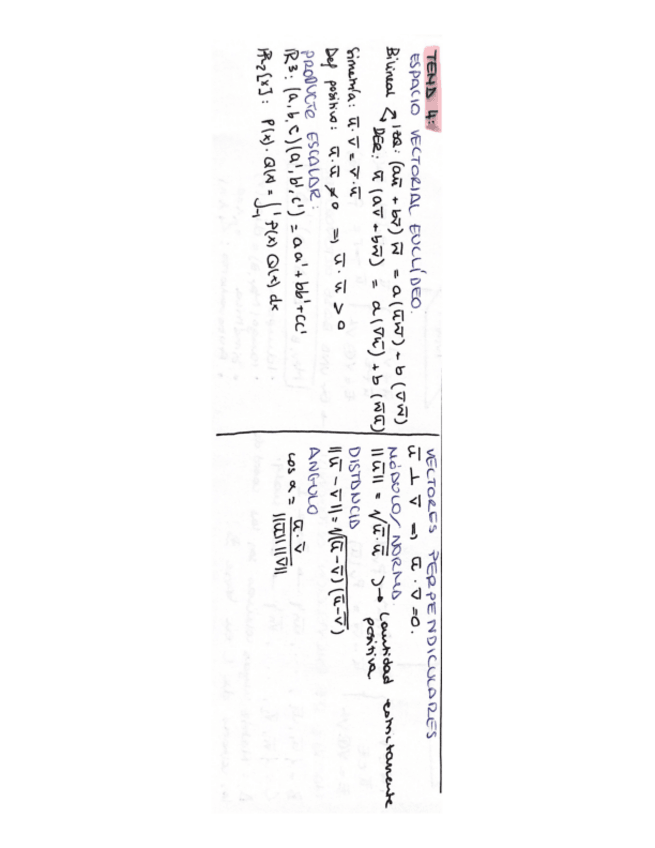 TEMA 4:
ESPACIO VECTORIAL EUCLÍDEO.
Bilineal ↗ IZQ: (aū + bv̄) w̄ = a(ūw̄) + b(v̄w̄)
↘ DER: ū (av̄ + bw̄) = a(v̄ū) + b(w̄ū)
Simetría: ū·v̄ = v̄·ū
Def positivo: ū·ū ≠ 0 ⇒ ū·ū > 0
PRODUCTO ESCALAR:
ℝ3: (a, b, c)(a', b', c') = aa' + bb' + cc'
ℙ2[x]: P(x)·Q(x) = ∫₋₁¹ P(x) Q(x) dx
VECTORES PERPENDICULARES
ū ⊥ v̄ ⇒ ū·v̄ = 0.
MÓDULO/NORMA.
||ū|| = √ū·ū → Cantidad estrictamente
positiva
DISTANCIA
||ū - v̄|| = √(ū-v̄)(ū-v̄)
ANGULO
cos α = ū·v̄
||ū|| ||v̄||